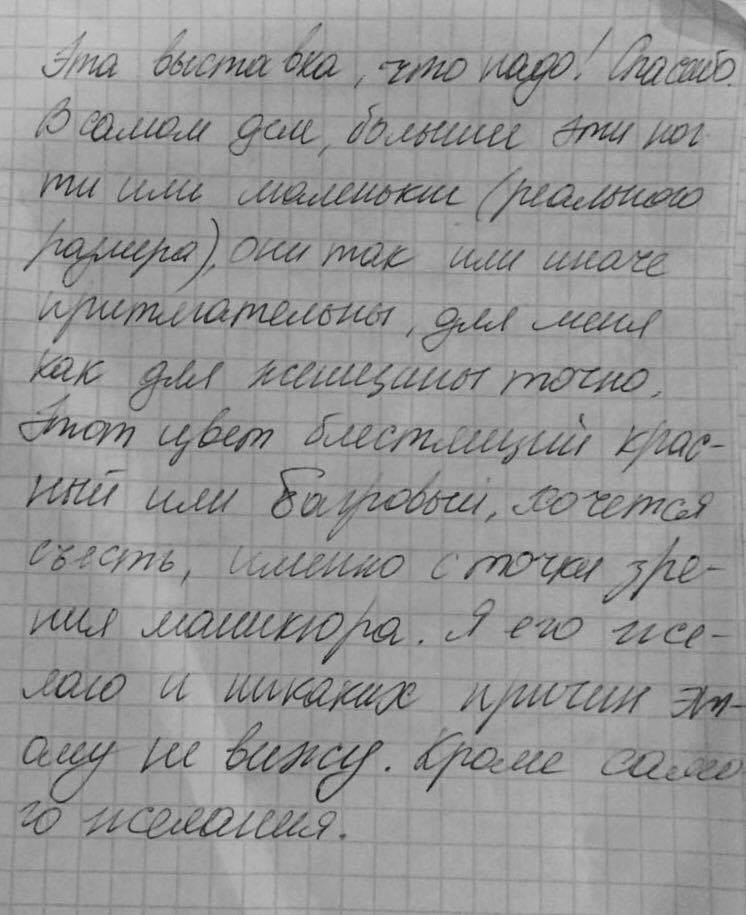 Эта выставка, что надо! Спасибо.
В самом деле, большие эти ног
ти или маленькие (реального
размера), они так или иначе
притягательны, для меня
как для женщины точно.
Этот цвет блестящий крас-
ный или багровый, хочется
съесть, именно с точки зре-
ния маникюра. Я его же-
лаю и никаких причин эт-
ому не вижу. Кроме само
го желания.